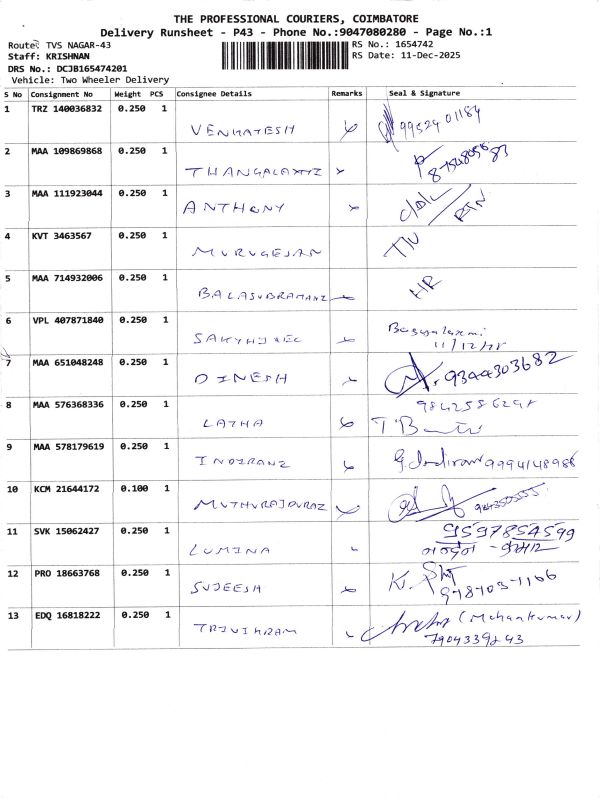 THE PROFESSIONAL COURIERS, COIMBATORE
Delivery Runsheet - P43 - Phone No.:9047080280 - Page No.:1
Route: TVS NAGAR-43
RS No.: 1654742
Staff: KRISHNAN
RS Date: 11-Dec-2025
DRS No.: DCJB165474201
Vehicle: Two Wheeler Delivery
S No Consignment No Weight PCS Consignee Details Remarks Seal & Signature
1 TRZ 140036832 0.250 1
VENKATESH 9952401184
2 MAA 109869868 0.250 1
THANGALAXYZ
3 MAA 111923044 0.250 1
ANTHONY RTN
4 KVT 3463567 0.250 1
MURUGESAN
5 MAA 714932006 0.250 1
BALASUBRAMANI HR
6 VPL 407871840 0.250 1
11/12/25
7 MAA 651048248 0.250 1
DINESH 9344303682
8 MAA 576368336 0.250 1
LATHA
9 MAA 578179619 0.250 1
INDIRANI 9994148988
10 KCM 21644172 0.100 1
MUTHURAJDURAI
11 SVK 15062427 0.250 1
LUMINA 9597854599
12 PRO 18663768 0.250 1
SUJEESH
13 EDQ 16818222 0.250 1
TRIVIKRAM (Mohankumar)